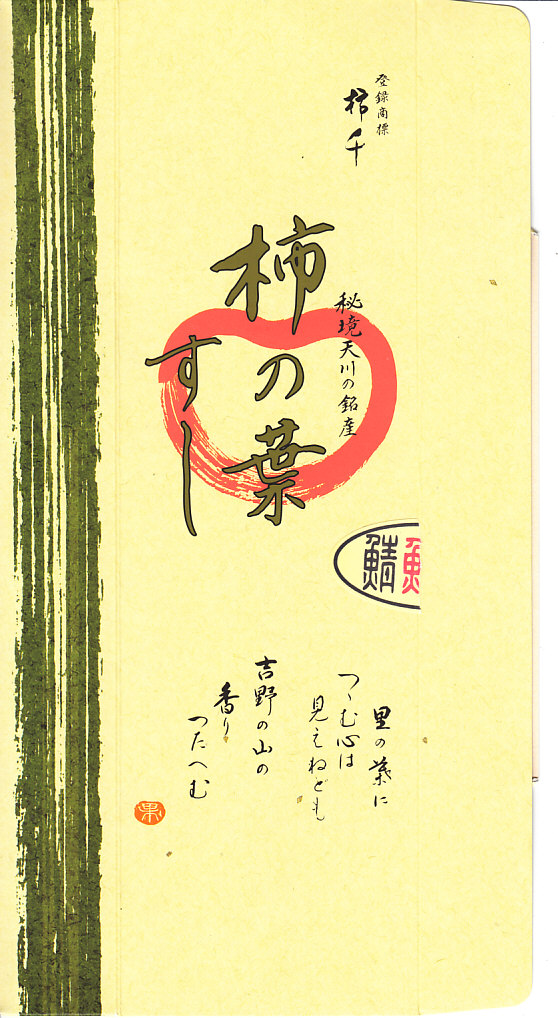 登録商標
柿千
秘境天川の銘産
柿の葉
すし
鯖
里の葉に
つゝむ心は
見えねども
吉野の山の
香り
つたへむ